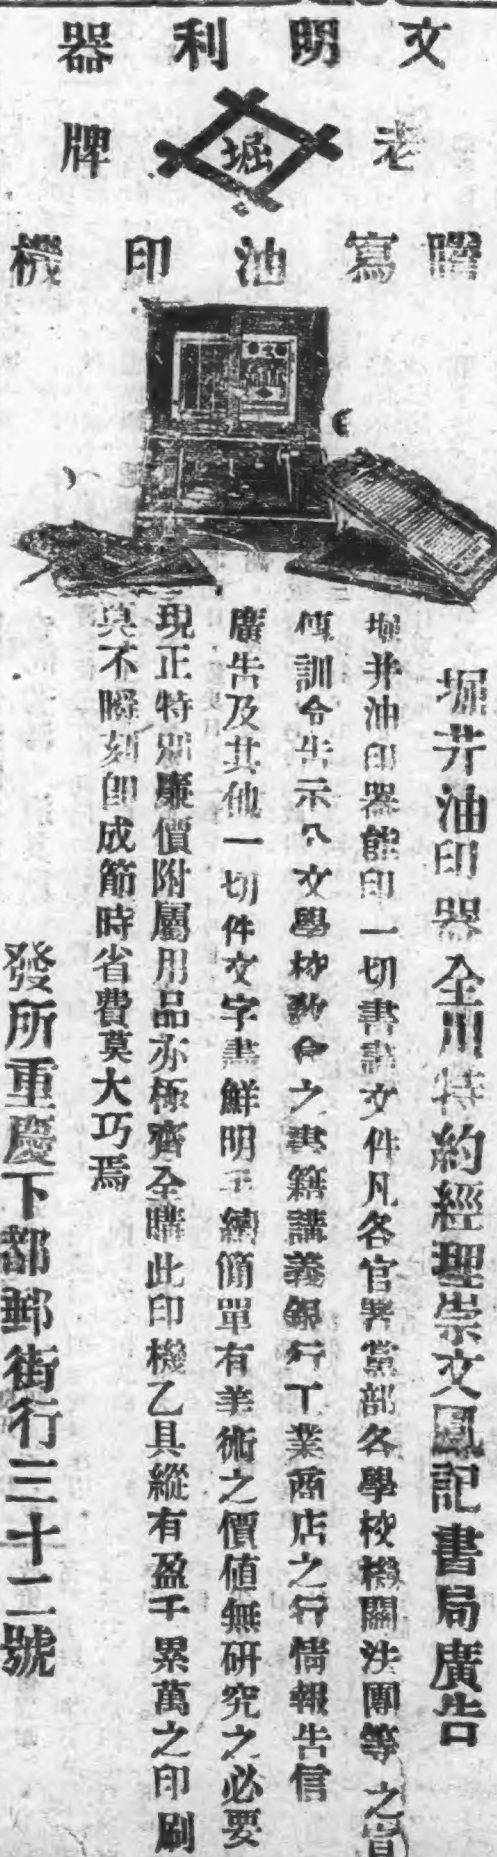 文明利器
老堀牌
謄寫油印機
堀井油印器全川特約經理崇文鳳記書局廣告
堀井油印器能印一切書籍文件凡各官署黨部各學校機關法團等之宣
傳訓令告示公文學校敎會之書籍講義銀行工業商店之行情報告信
廣告及其他一切件文字畫鮮明手續簡單有美術之價値無研究之必要
現正特別廉價附屬用品亦極齊全購此印機乙具縱有盈千累萬之印刷
具不瞬刻卽成節時省費莫大巧焉
發所重慶下都郵街行三十二號